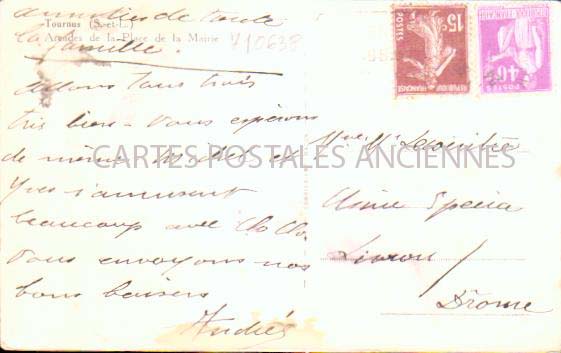 amitiés de toute
la famille.
Tournus (S-et-L.)
Arcades de la Place de la Mairie
710638
allons tous trois
très bien. Vous espérons
de même.
Yves s'amusent
beaucoup avec Clo Clo.
Vous envoyons nos
bons baisers
André
CARTES POSTALES ANCIENNES
15c
POSTES
REPUBLIQUE FRANÇAISE
40c
POSTES
Usine Spécia
Livron
Drôme